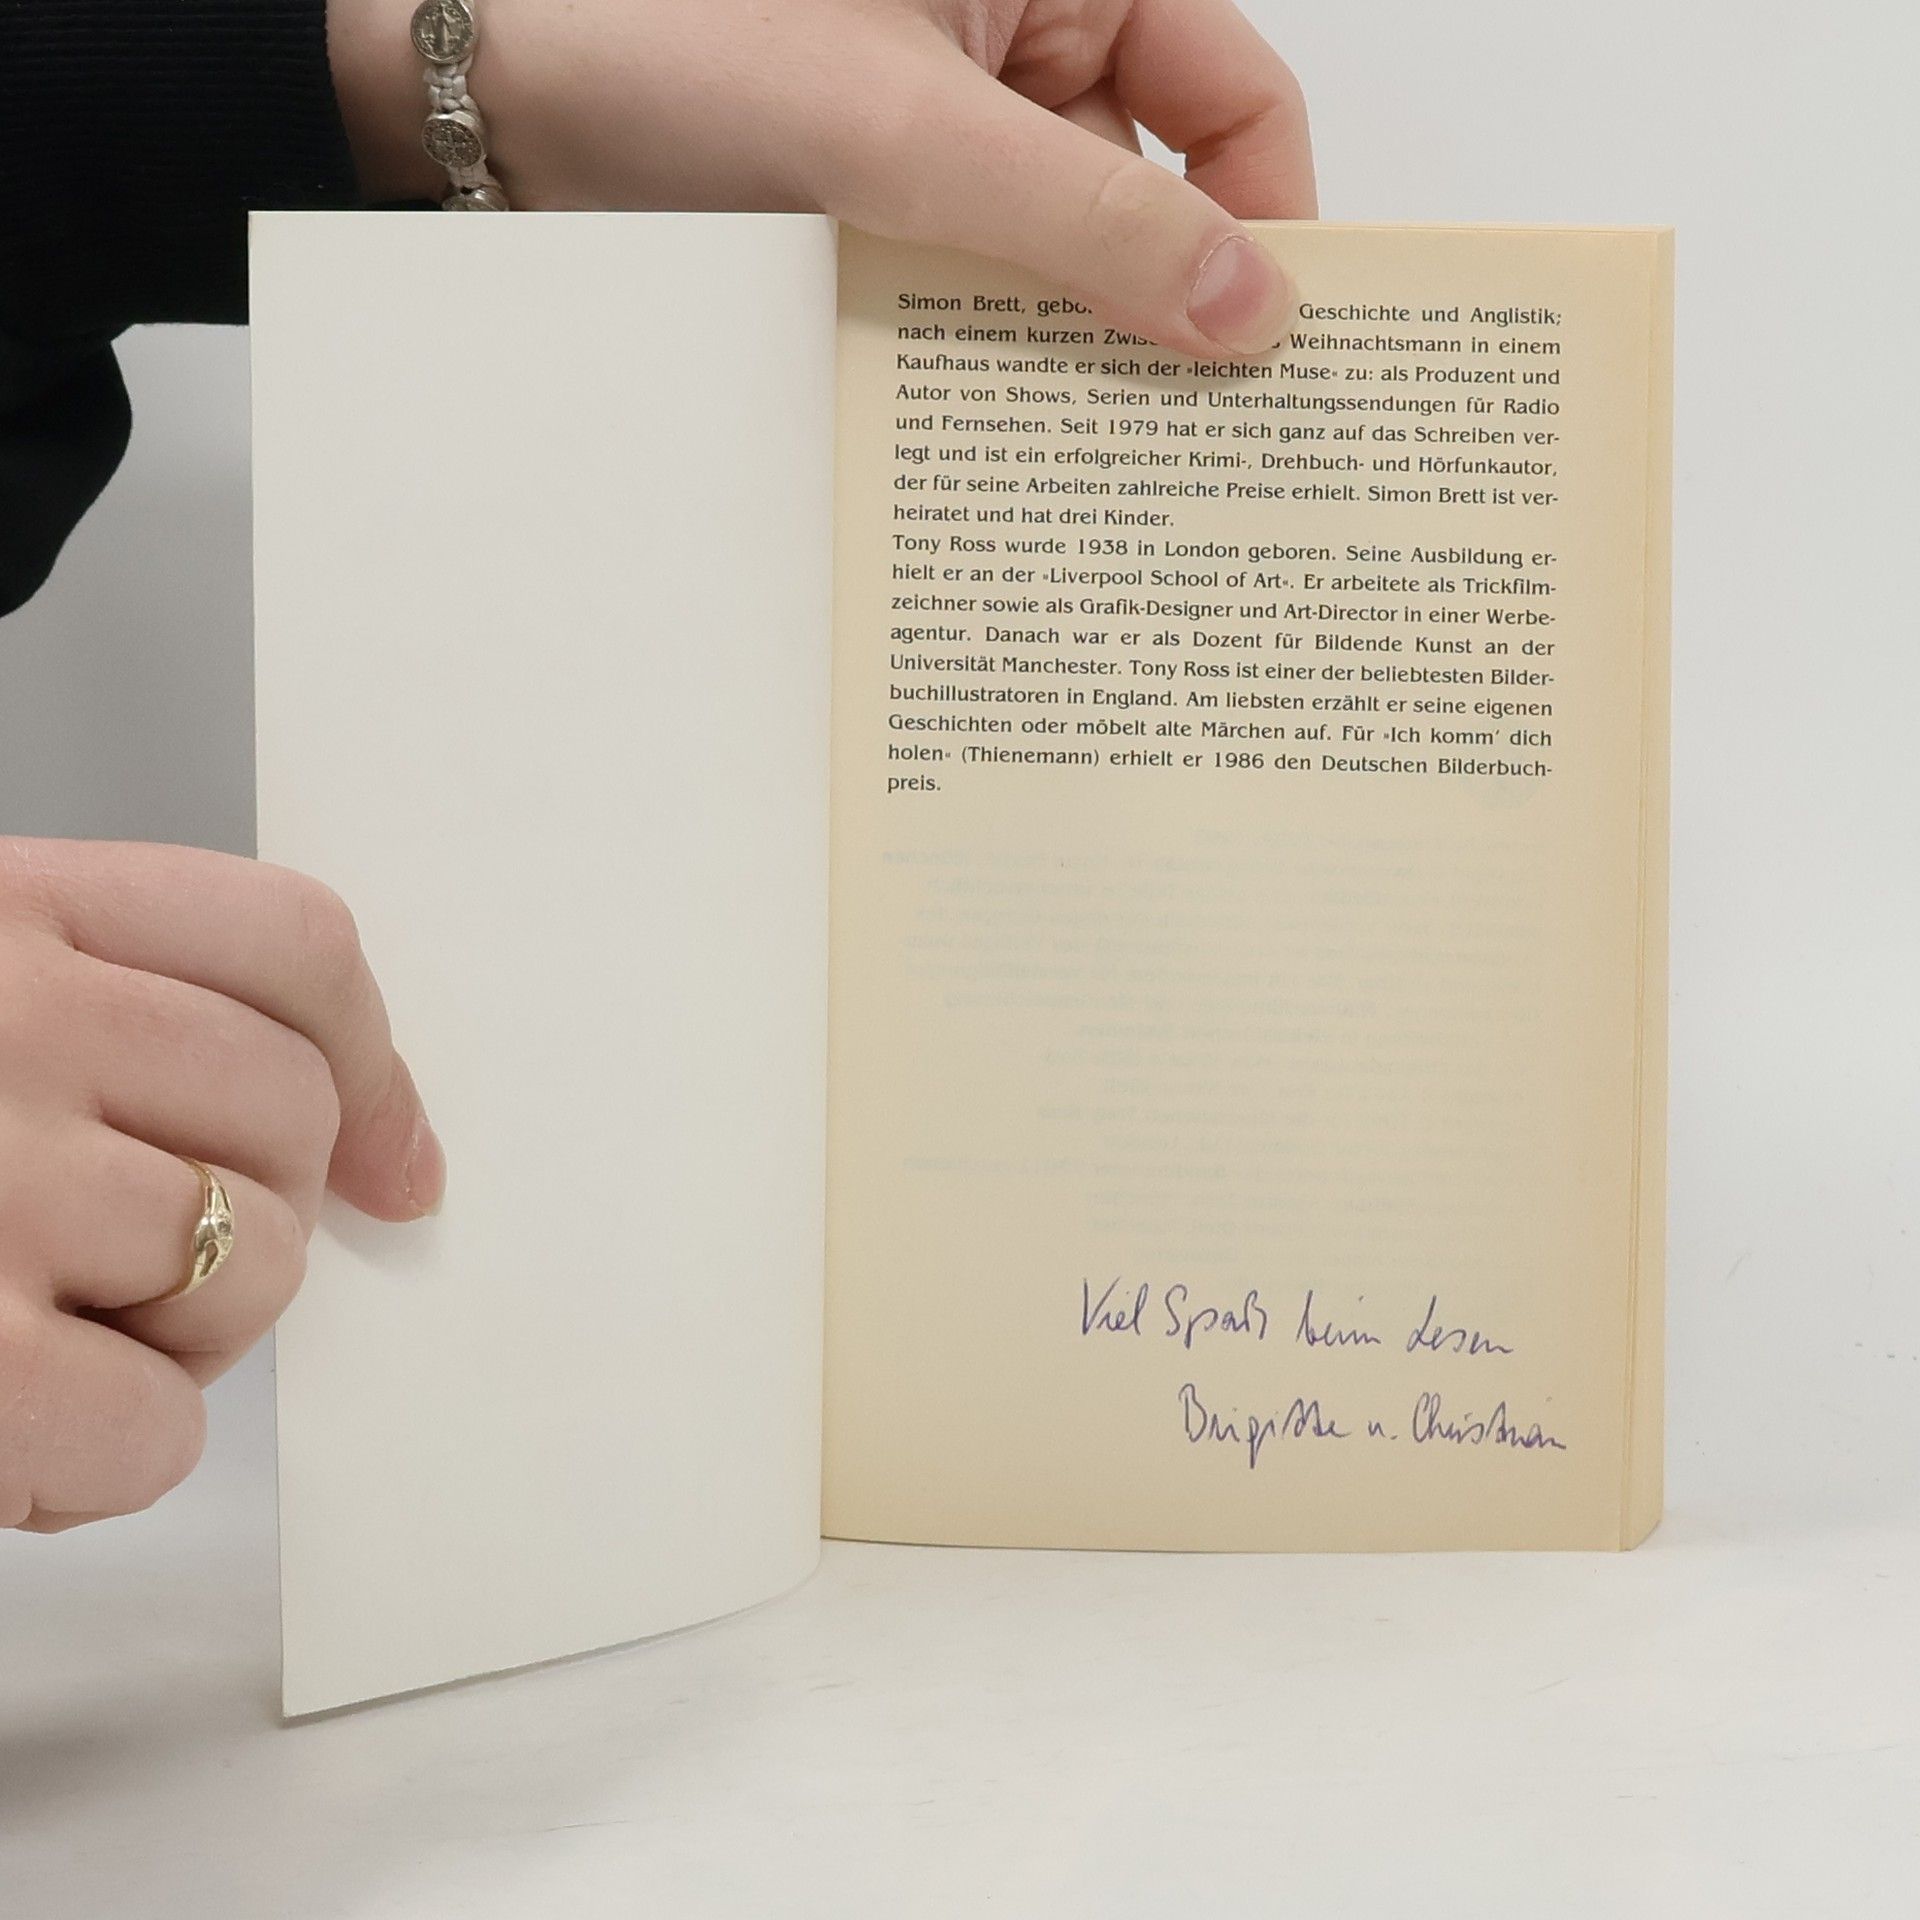 Simon Brett, Geschichte und Anglistik;
nach einem kurzen Weihnachtsmann in einem
Kaufhaus wandte er sich der »leichten Muse« zu: als Produzent und
Autor von Shows, Serien und Unterhaltungssendungen für Radio
und Fernsehen. Seit 1979 hat er sich ganz auf das Schreiben ver-
legt und ist ein erfolgreicher Krimi-, Drehbuch- und Hörfunkautor,
der für seine Arbeiten zahlreiche Preise erhielt. Simon Brett ist ver-
heiratet und hat drei Kinder.
Tony Ross wurde 1938 in London geboren. Seine Ausbildung er-
hielt er an der »Liverpool School of Art«. Er arbeitete als Trickfilm-
zeichner sowie als Grafik-Designer und Art-Director in einer Werbe-
agentur. Danach war er als Dozent für Bildende Kunst an der
Universität Manchester. Tony Ross ist einer der beliebtesten Bilder-
buchillustratoren in England. Am liebsten erzählt er seine eigenen
Geschichten oder möbelt alte Märchen auf. Für »Ich komm' dich
holen« (Thienemann) erhielt er 1986 den Deutschen Bilderbuch-
preis.
Viel Spaß beim Lesen
Brigitte u. Christian